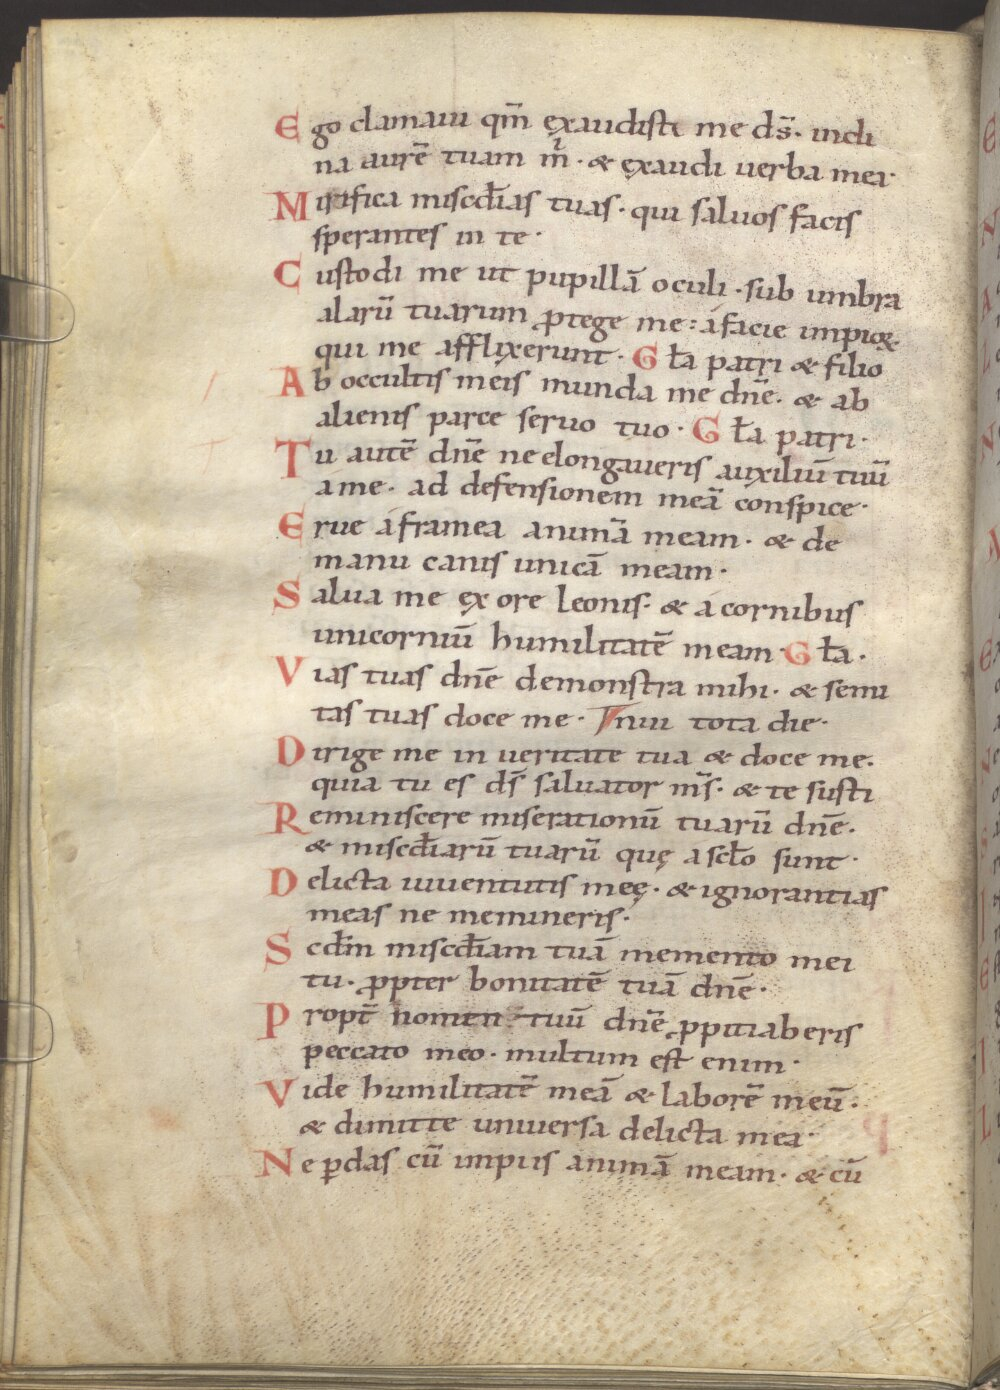 Ego clamaui qm̄ exaudisti me ds̄· incli
na aurē tuam m̄ⁱ· & exaudi uerba mea·
Mirifica misc̄dias tuas· qui saluos facis
sperantes in te·
Custodi me ut pupillā oculi· sub umbra
alarū tuarum ꝓtege me: a facie impioꝝ·
qui me afflixerunt· Gl̄a patri & filio
Ab occultis meis munda me dn̄e· & ab
alienis parce seruo tuo· Gl̄a patri·
Tu autē dn̄e ne elongaueris auxiliū tuū
a me· ad defensionem meā conspice·
Erue a framea animā meam· & de
manu canis unicā meam·
Salua me ex ore leonis· & a cornibus
unicorniū humilitatē meam· Gl̄a·
Vias tuas dn̄e demonstra mihi· & semi
tas tuas doce me· tota die·
Dirige me in ueritate tua & doce me·
quia tu es ds̄ saluator ms̄· & te susti
Reminiscere miserationū tuarū dn̄e·
& misc̄diarū tuarū quę a sc̄lo sunt·
Delicta iuuentutis meę· & ignorantias
meas ne memineris·
Scd̄m misc̄diam tuā memento mei
tu· ꝓpter bonitatē tuā dn̄e·
Propt̄ nomen tuū dn̄e ꝓpitiaberis
peccato meo· multum est enim·
Vide humilitatē meā & laborē meū·
& dimitte uniuersa delicta mea·
Ne ꝑdas cū impiis animā meam· & cū